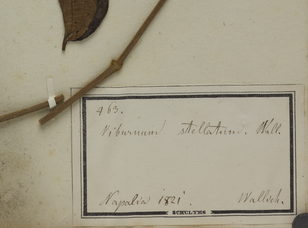 463.
Viburnum stellatum. Wall.
Napalia 1821. Wallich.